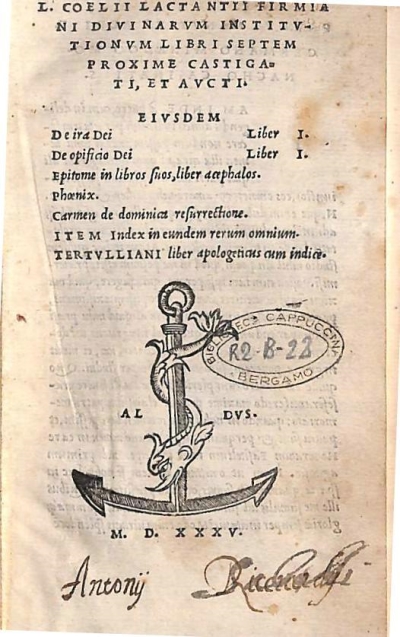 L. COELII LACTANTII FIRMIA
NI DIVINARVM INSTITV-
TIONVM LIBRI SEPTEM
PROXIME CASTIGA-
TI, ET AVCTI.
EIVSDEM
De ira Dei Liber I.
De opificio Dei Liber I.
Epitome in libros suos, liber acephalos.
Phœnix.
Carmen de dominica resurrectione.
ITEM Index in eundem rerum omnium.
TERTVLLIANI liber apologeticus cum indice.
BIBLIOTECA CAPPUCCINI
R2-B-23
BERGAMO
AL DVS.
M. D. XXXV.
Antonij